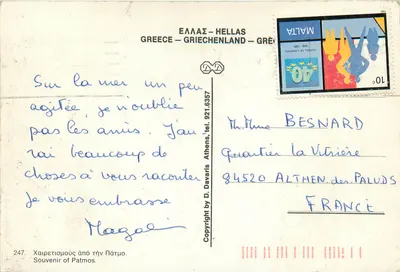 ΕΛΛΑΣ – HELLAS
GREECE – GRIECHENLAND – GRÈ
MALTA
40
10c
Sur la mer un peu
agitée, je n'oublie
pas les amis. J'au
rai beaucoup de
choses à vous raconter
Je vous embrasse
Magali
Copyright by D. Davaris Athens, tel. 921.6357
M. Mme BESNARD
Quartier La Vitrière
84520 ALTHEN.des.PALUDS
FRANCE
247. Χαιρετισμούς ἀπό τήν Πάτμο.
Souvenir of Patmos.